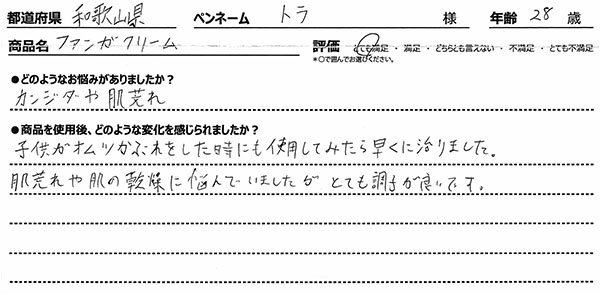 都道府県 和歌山県 ペンネーム トラ 様 年齢 28 歳
商品名 ファンガクリーム 評価 とても満足 ・ 満足 ・ どちらとも言えない ・ 不満足 ・ とても不満足
*○で囲んでお選びください。
●どのようなお悩みがありましたか？
カンジダや肌荒れ
●商品を使用後、どのような変化を感じられましたか？
子供がオムツかぶれをした時にも使用してみたら早くに治りました。
肌荒れや肌の乾燥に悩んでいましたが とても調子が良いです。